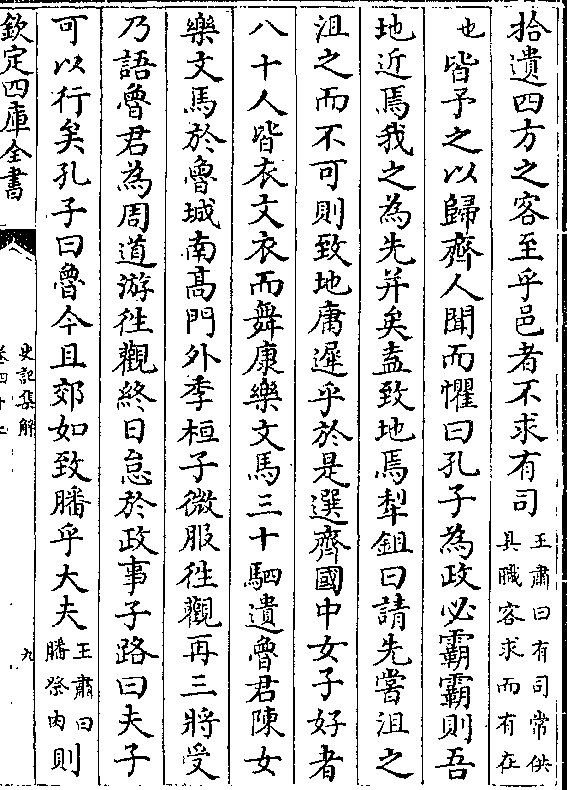 拾遺四方之客至乎邑者不求有司王肅曰有司常供具職客求而有在
也皆予之以歸齊人聞而懼曰孔子為政必霸霸則吾
地近焉我之為先并矣盍致地焉犁鉏曰請先嘗沮之
沮之而不可則致地庸遲乎於是選齊國中女子好者
八十人皆衣文衣而舞康樂文馬三十駟遺魯君陳女
樂文馬於魯城南髙門外季桓子微服徃觀再三將受
乃語魯君為周道游徃觀終日怠於政事子路曰夫子
可以行矣孔子曰魯今且郊如致膰乎大夫王肅曰膰祭肉則
欽定四庫全書
史記集解
卷四十七
九